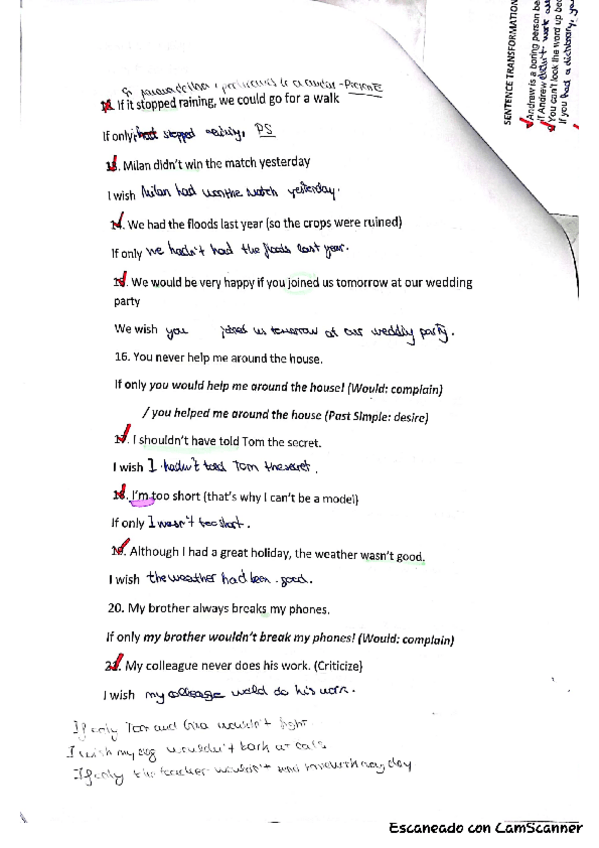 SENTENCE TRANSFORMATION
Andrew is a boring person be
If Andrew didn't
You can't look the word up bec
If you had a dictionary, yo
12. If it stopped raining, we could go for a walk
If only stopped raining, PS
13. Milan didn't win the match yesterday
I wish Milan had won the match yesterday.
14. We had the floods last year (so the crops were ruined)
If only we hadn't had the floods last year.
15. We would be very happy if you joined us tomorrow at our wedding
party
We wish you joined us tomorrow at our wedding party.
16. You never help me around the house.
If only you would help me around the house! (Would: complain)
/ you helped me around the house (Past Simple: desire)
17. I shouldn't have told Tom the secret.
I wish I hadn't told Tom the secret.
18. I'm too short (that's why I can't be a model)
If only I wasn't too short.
19. Although I had a great holiday, the weather wasn't good.
I wish the weather had been good.
20. My brother always breaks my phones.
If only my brother wouldn't break my phones! (Would: complain)
21. My colleague never does his work. (Criticize)
I wish my colleage would do his work.
If only Tom and wouldn't fight
I wish my dog wouldn't bark at cats
If only the teacher wouldn't day
Escaneado con CamScanner